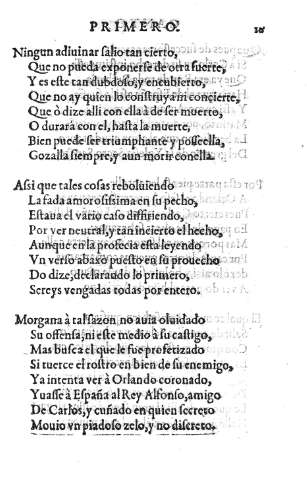 PRIMERO. 30
Ningun adiuinar salio tan cierto,
Que no pueda exponerse de otra suerte,
Y es este tan dubdoso, y encubierto,
Que no ay quien lo construya ni concierte,
Que ò dize alli con ella à de ser muerto,
O durarà con el, hasta la muerte,
Bien puede ser triumphante y posseella,
Gozalla siempre, y aun morir conella.
Assi que tales cosas reboluiendo
La fada amorosissima en su pecho,
Estaua el vario caso diffiriendo,
Por ver neutral, y tan incierto el hecho,
Aunque en la profecia esta leyendo
Vn verso abaxo puesto en su prouecho
Do dize, declarãdo lo primero,
Sereys vengadas todas por entero.
Morgana à tal sazon no auia oluidado
Su offensa, ni este medio à su castigo,
Mas busca el que le fue profetizado
Si tuerce el rostro en bien de su enemigo,
Ya intenta ver à Orlando coronado,
Yuasse à España al Rey Alfonso, amigo
De Carlos, y cuñado en quien secreto
Mouio vn piadoso zelo, y no discreto.